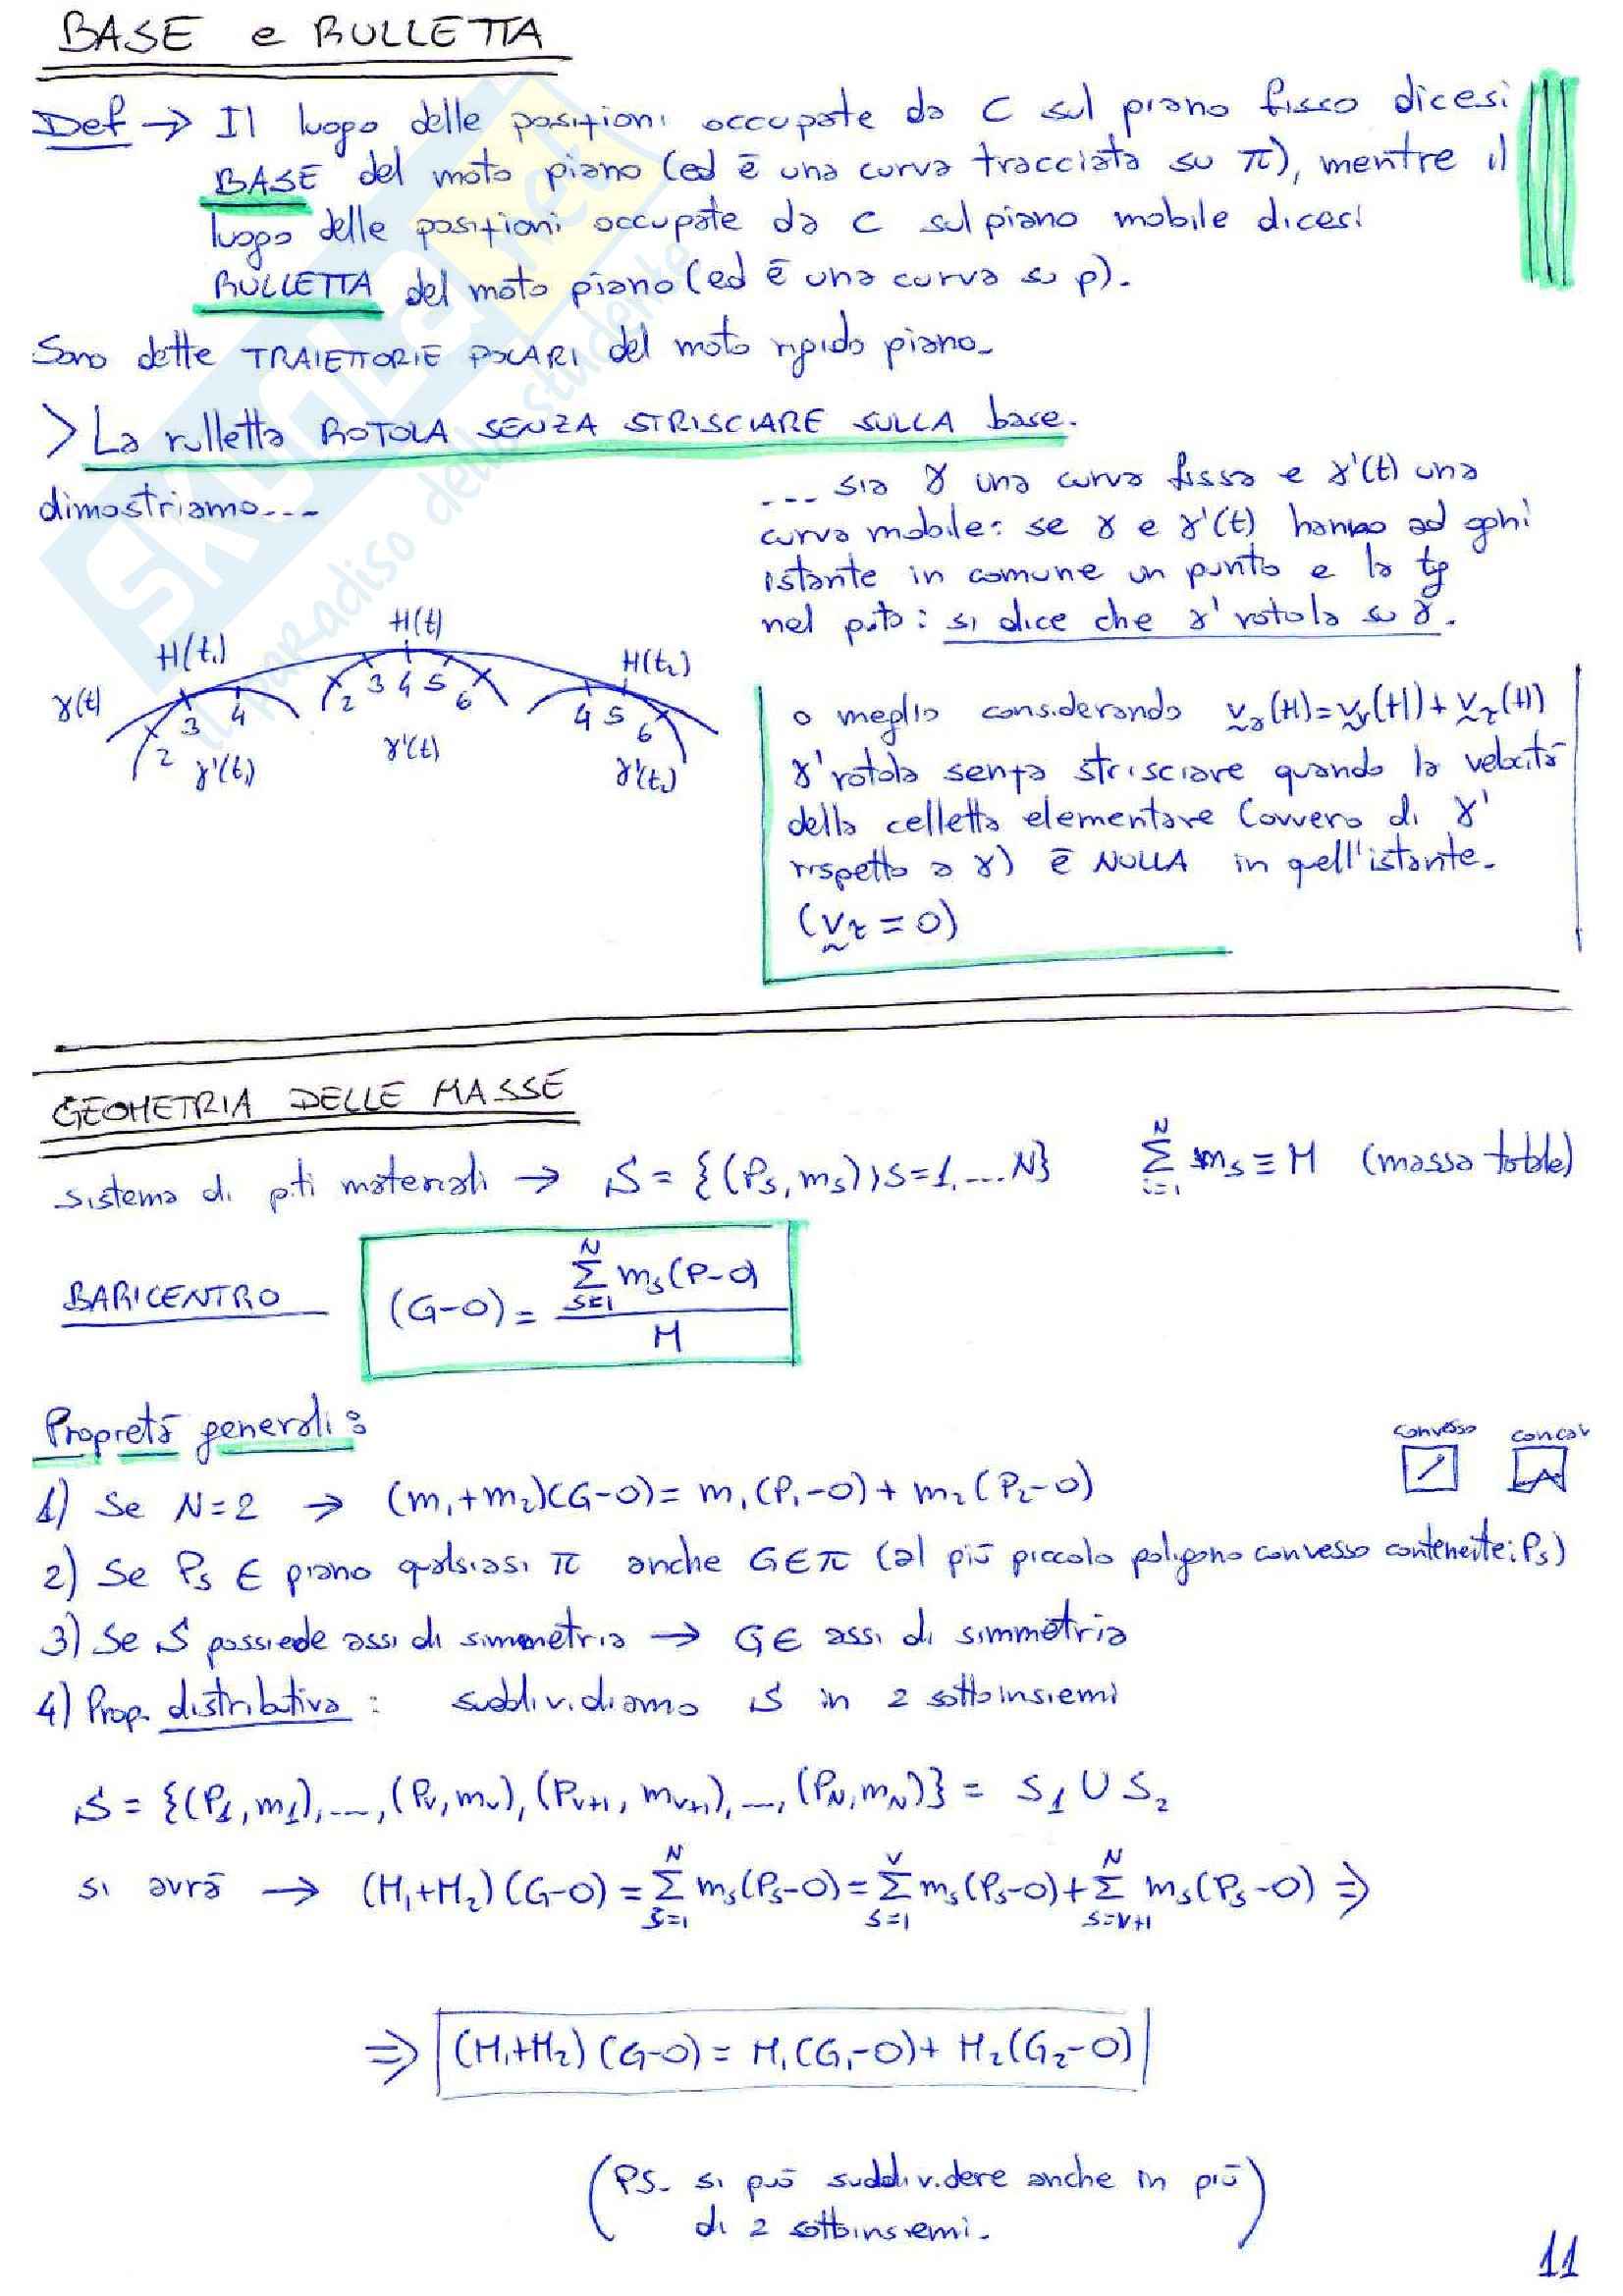 BASE e RULLETTA
Def → Il luogo delle posizioni occupate da C sul piano fisso dicesi
BASE del moto piano (ed è una curva tracciata su π), mentre il
luogo delle posizioni occupate da C sul piano mobile dicesi
RULLETTA del moto piano (ed è una curva su p).
Sono dette TRAIETTORIE POLARI del moto rigido piano.
> La rulletta ROTOLA SENZA STRISCIARE SULLA base.
dimostriamo...
... sia γ una curva fissa e γ'(t) una
curva mobile: se γ e γ'(t) hanno ad ogni
istante in comune un punto e la tg
nel p.to: si dice che γ' rotola su γ.
H(t₁) H(t) H(t₂)
γ(t) 2 3 4 2 3 4 5 6 4 5 6
γ'(t₁) γ'(t) γ'(t₂)
o meglio considerando v_a(H)=v_r(H)+v_τ(H)
γ' rotola senza strisciare quando la velocità
della celletta elementare (ovvero di γ'
rispetto a γ) è NULLA in quell'istante.
(v_τ = 0)
GEOMETRIA DELLE MASSE
sistema di p.ti materiali → S = {(Ps, ms), s=1,...N} Σ_{i=1}^{N} ms ≡ M (massa totale)
BARICENTRO (G-O) = Σ_{s=1}^{N} ms(P-O) / M
Propretà generali:
convesso concav
1) Se N=2 → (m₁+m₂)(G-O) = m₁(P₁-O) + m₂(P₂-O)
2) Se Ps ∈ piano qualsiasi π anche G∈π (al più piccolo poligono convesso contenente i Ps)
3) Se S possiede assi di simmetria → G∈ assi di simmetria
4) Prop. distributiva: suddividiamo S in 2 sottoinsiemi
S = {(P₁,m₁),...,(Pν,mν),(Pν+1,mν+1),...,(PN,mN)} = S₁ ∪ S₂
si avrà → (M₁+M₂)(G-O) = Σ_{s=1}^{N} ms(Ps-O) = Σ_{s=1}^{ν} ms(Ps-O) + Σ_{s=ν+1}^{N} ms(Ps-O) ⇒
⇒ (M₁+M₂)(G-O) = M₁(G₁-O) + M₂(G₂-O)
(PS. si può suddividere anche in più
di 2 sottoinsiemi.)
11
SKUOLA.net
il paradiso dello studente